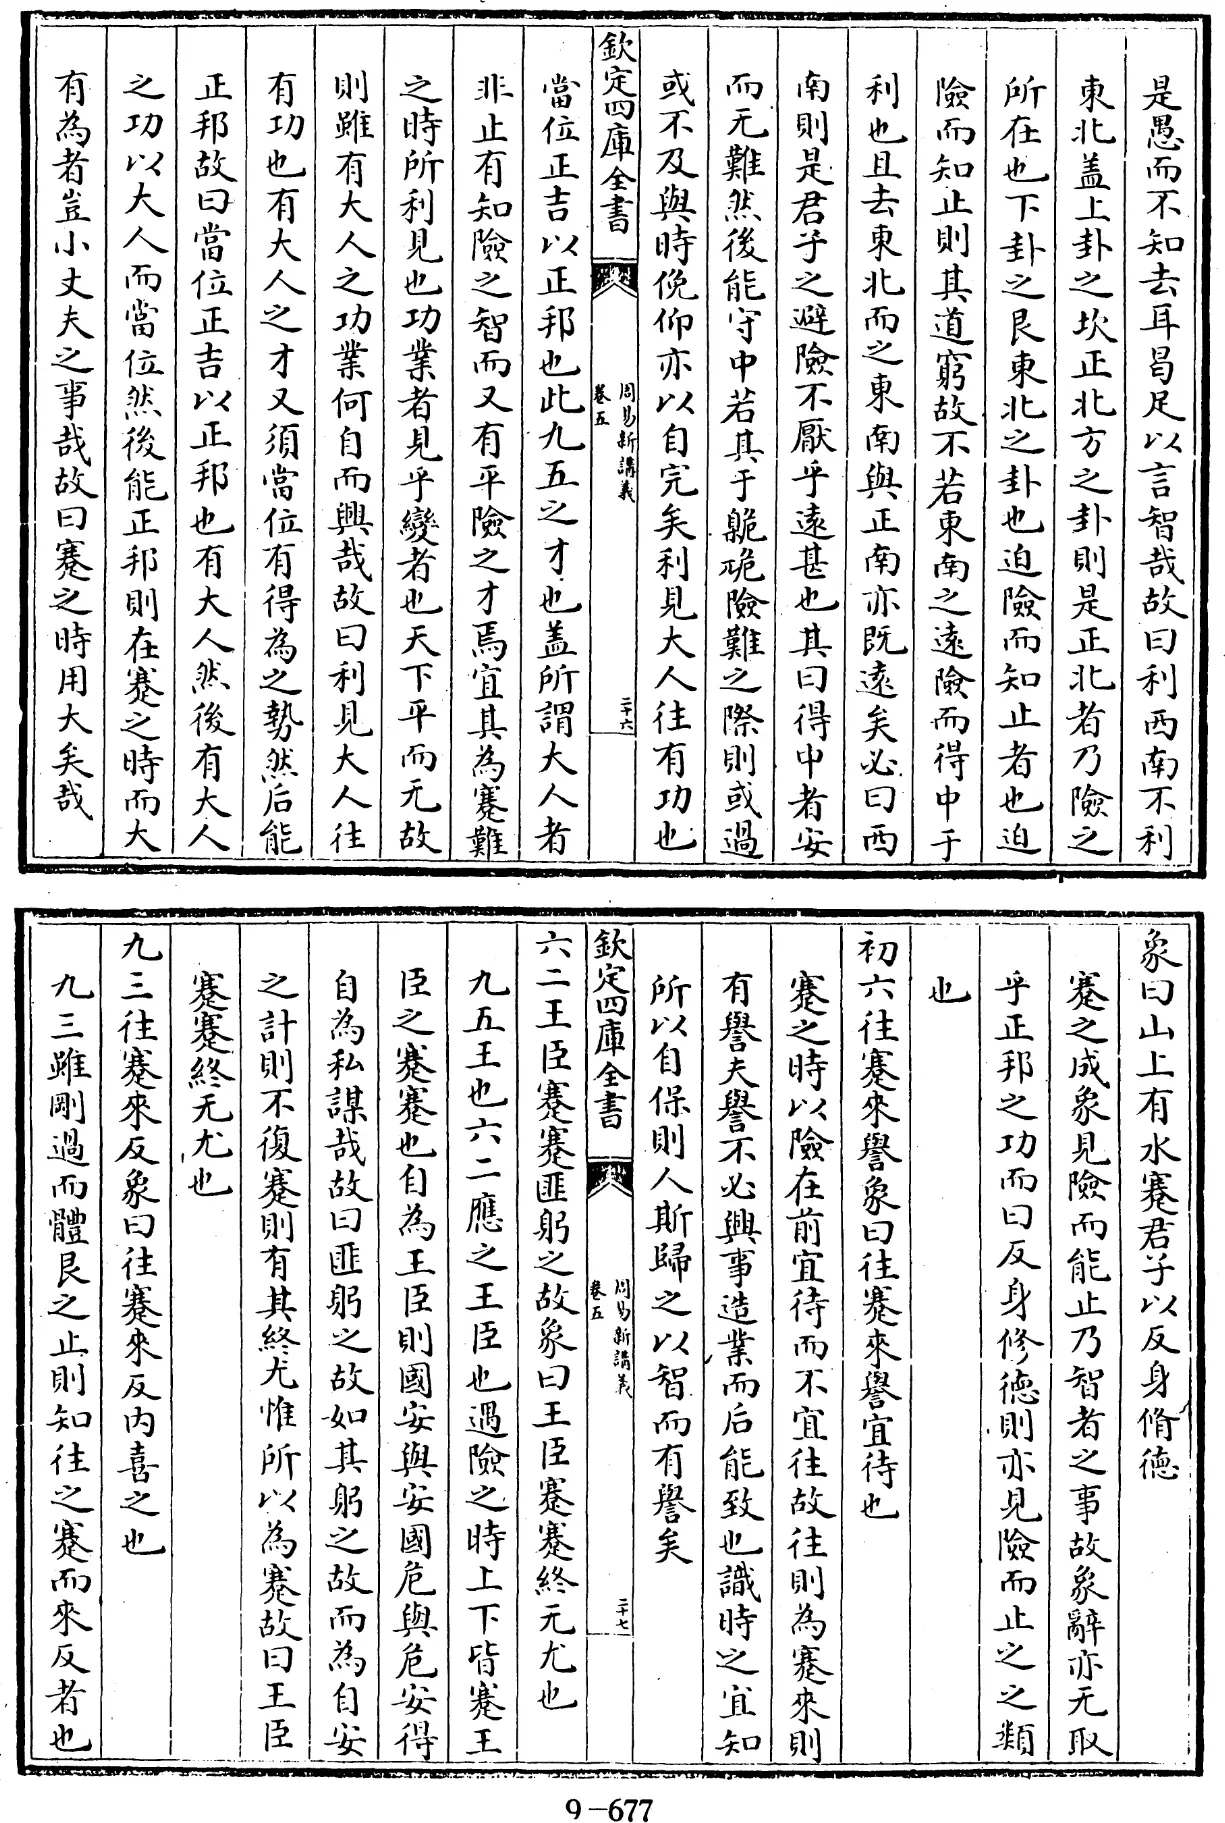 是愚而不知去耳曷足以言智哉故曰利西南不利
東北盖上卦之坎正北方之卦則是正北者乃險之
所在也下卦之艮東北之卦也迫險而知止者也迫
險而知止則其道窮故不若東南之遠險而得中于
利也且去東北而之東南與正南亦既遠矣必曰西
南則是君子之避險不厭乎遠甚也其曰得中者安
而无難然後能守中若其于臲卼險難之際則或過
或不及與時俛仰亦以自完矣利見大人往有功也
欽定四庫全書
周易新講義
卷五
二十六
當位正吉以正邦也此九五之才也盖所謂大人者
非止有知險之智而又有平險之才焉宜其為蹇難
之時所利見也功業者見乎變者也天下平而无故
則雖有大人之功業何自而興哉故曰利見大人往
有功也有大人之才又須當位有得為之勢然后能
正邦故曰當位正吉以正邦也有大人然後有大人
之功以大人而當位然後能正邦則在蹇之時而大
有為者豈小丈夫之事哉故曰蹇之時用大矣哉
象曰山上有水蹇君子以反身脩德
蹇之成象見險而能止乃智者之事故象辭亦无取
乎正邦之功而曰反身修德則亦見險而止之之類
也
初六往蹇來譽象曰往蹇來譽宜待也
蹇之時以險在前宜待而不宜往故往則為蹇來則
有譽夫譽不必興事造業而后能致也識時之宜知
所以自保則人斯歸之以智而有譽矣
欽定四庫全書
周易新講義
卷五
二十七
六二王臣蹇蹇匪躬之故象曰王臣蹇蹇終无尤也
九五王也六二應之王臣也遇險之時上下皆蹇王
臣之蹇蹇也自為王臣則國安與安國危與危安得
自為私謀哉故曰匪躬之故如其躬之故而為自安
之計則不復蹇則有其終尤惟所以為蹇故曰王臣
蹇蹇終无尤也
九三往蹇來反象曰往蹇來反内喜之也
九三雖剛過而體艮之止則知往之蹇而來反者也
9-677